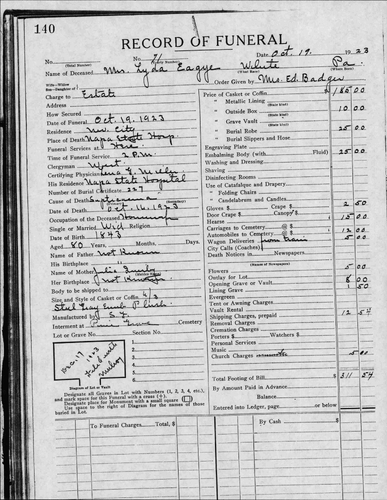 140
RECORD OF FUNERAL
No. 71
Date Oct. 19, 1923
(Total Number) (Yearly Number)
Name of Deceased Mrs. Lyda Eagye White Pa.
(What Race) (Where Born)
Wife—Widow
Son—Daughter of
Order Given by Mrs. Ed. Badger
Charge to Estate
Address
How Secured
Date of Funeral Oct. 19, 1923
Residence City
Place of Death Napa State Hosp
Funeral Services at Here
Time of Funeral Service 2 P.M.
Clergyman West
Certifying Physician
His Residence Napa State Hospital
Number of Burial Certificate 227
Cause of Death
Date of Death Oct. 16, 1923
Occupation of the Deceased
Single or Married Wid Religion
Date of Birth 1843
Aged 80 Years, Months, Days.
Name of Father not Known
His Birthplace "
Name of Mother
Her Birthplace not Known
Body to be shipped to
Size and Style of Casket or Coffin 6/3
Manufactured by
Interment at Cemetery
Lot or Grave No. Section No.
Diagram of Lot or Vault
Designate all Graves in Lot with Numbers (1, 2, 3, 4, etc.),
and mark space for this Funeral with a cross (+).
Designate place for Monument with a small square
Use space to the right of Diagram for the names of those
buried in Lot.
1
2
3
4
5
6
7
8
9
10
To Funeral Charges Total, $
Price of Casket or Coffin $
" Metallic Lining
(State Kind)
" Outside Box 10 00
(State Kind)
" Grave Vault
(State Kind)
" Burial Robe 25 00
(State Kind)
" Burial Slippers and Hose
Engraving Plate
Embalming Body (with Fluid) 25 00
Washing and Dressing
Shaving
Disinfecting Rooms
Use of Catafalque and Drapery
" Folding Chairs
" Candelabrum and Candles
Gloves $ Crape $ 2 50
Door Crape $ Canopy $
Hearse 15 00
Carriages to Cemetery @ $
Automobiles to Cemetery @ $ 12 00
Wagon Deliveries from train 5 00
City Calls (Coaches)
Death Notices in Newspapers
(Names of Newspapers)
Flowers 5 00
Outlay for Lot 8 00
Opening Grave or Vault
Lining Grave 1 50
Evergreen
Tent or Awning Charges
Vault Rental
Shipping Charges, prepaid 12 54
Removal Charges
Cremation Charges
Porters $ Watchers $
Personal Services
Music
Church Charges 5 00
Total Footing of Bill $ 311 54
By Amount Paid in Advance
Balance
Entered into Ledger, page or below
By Cash $